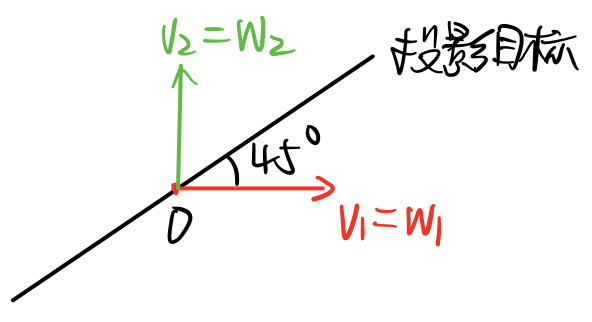 V₂=W₂
投影目标
45°
O
V₁=W₁